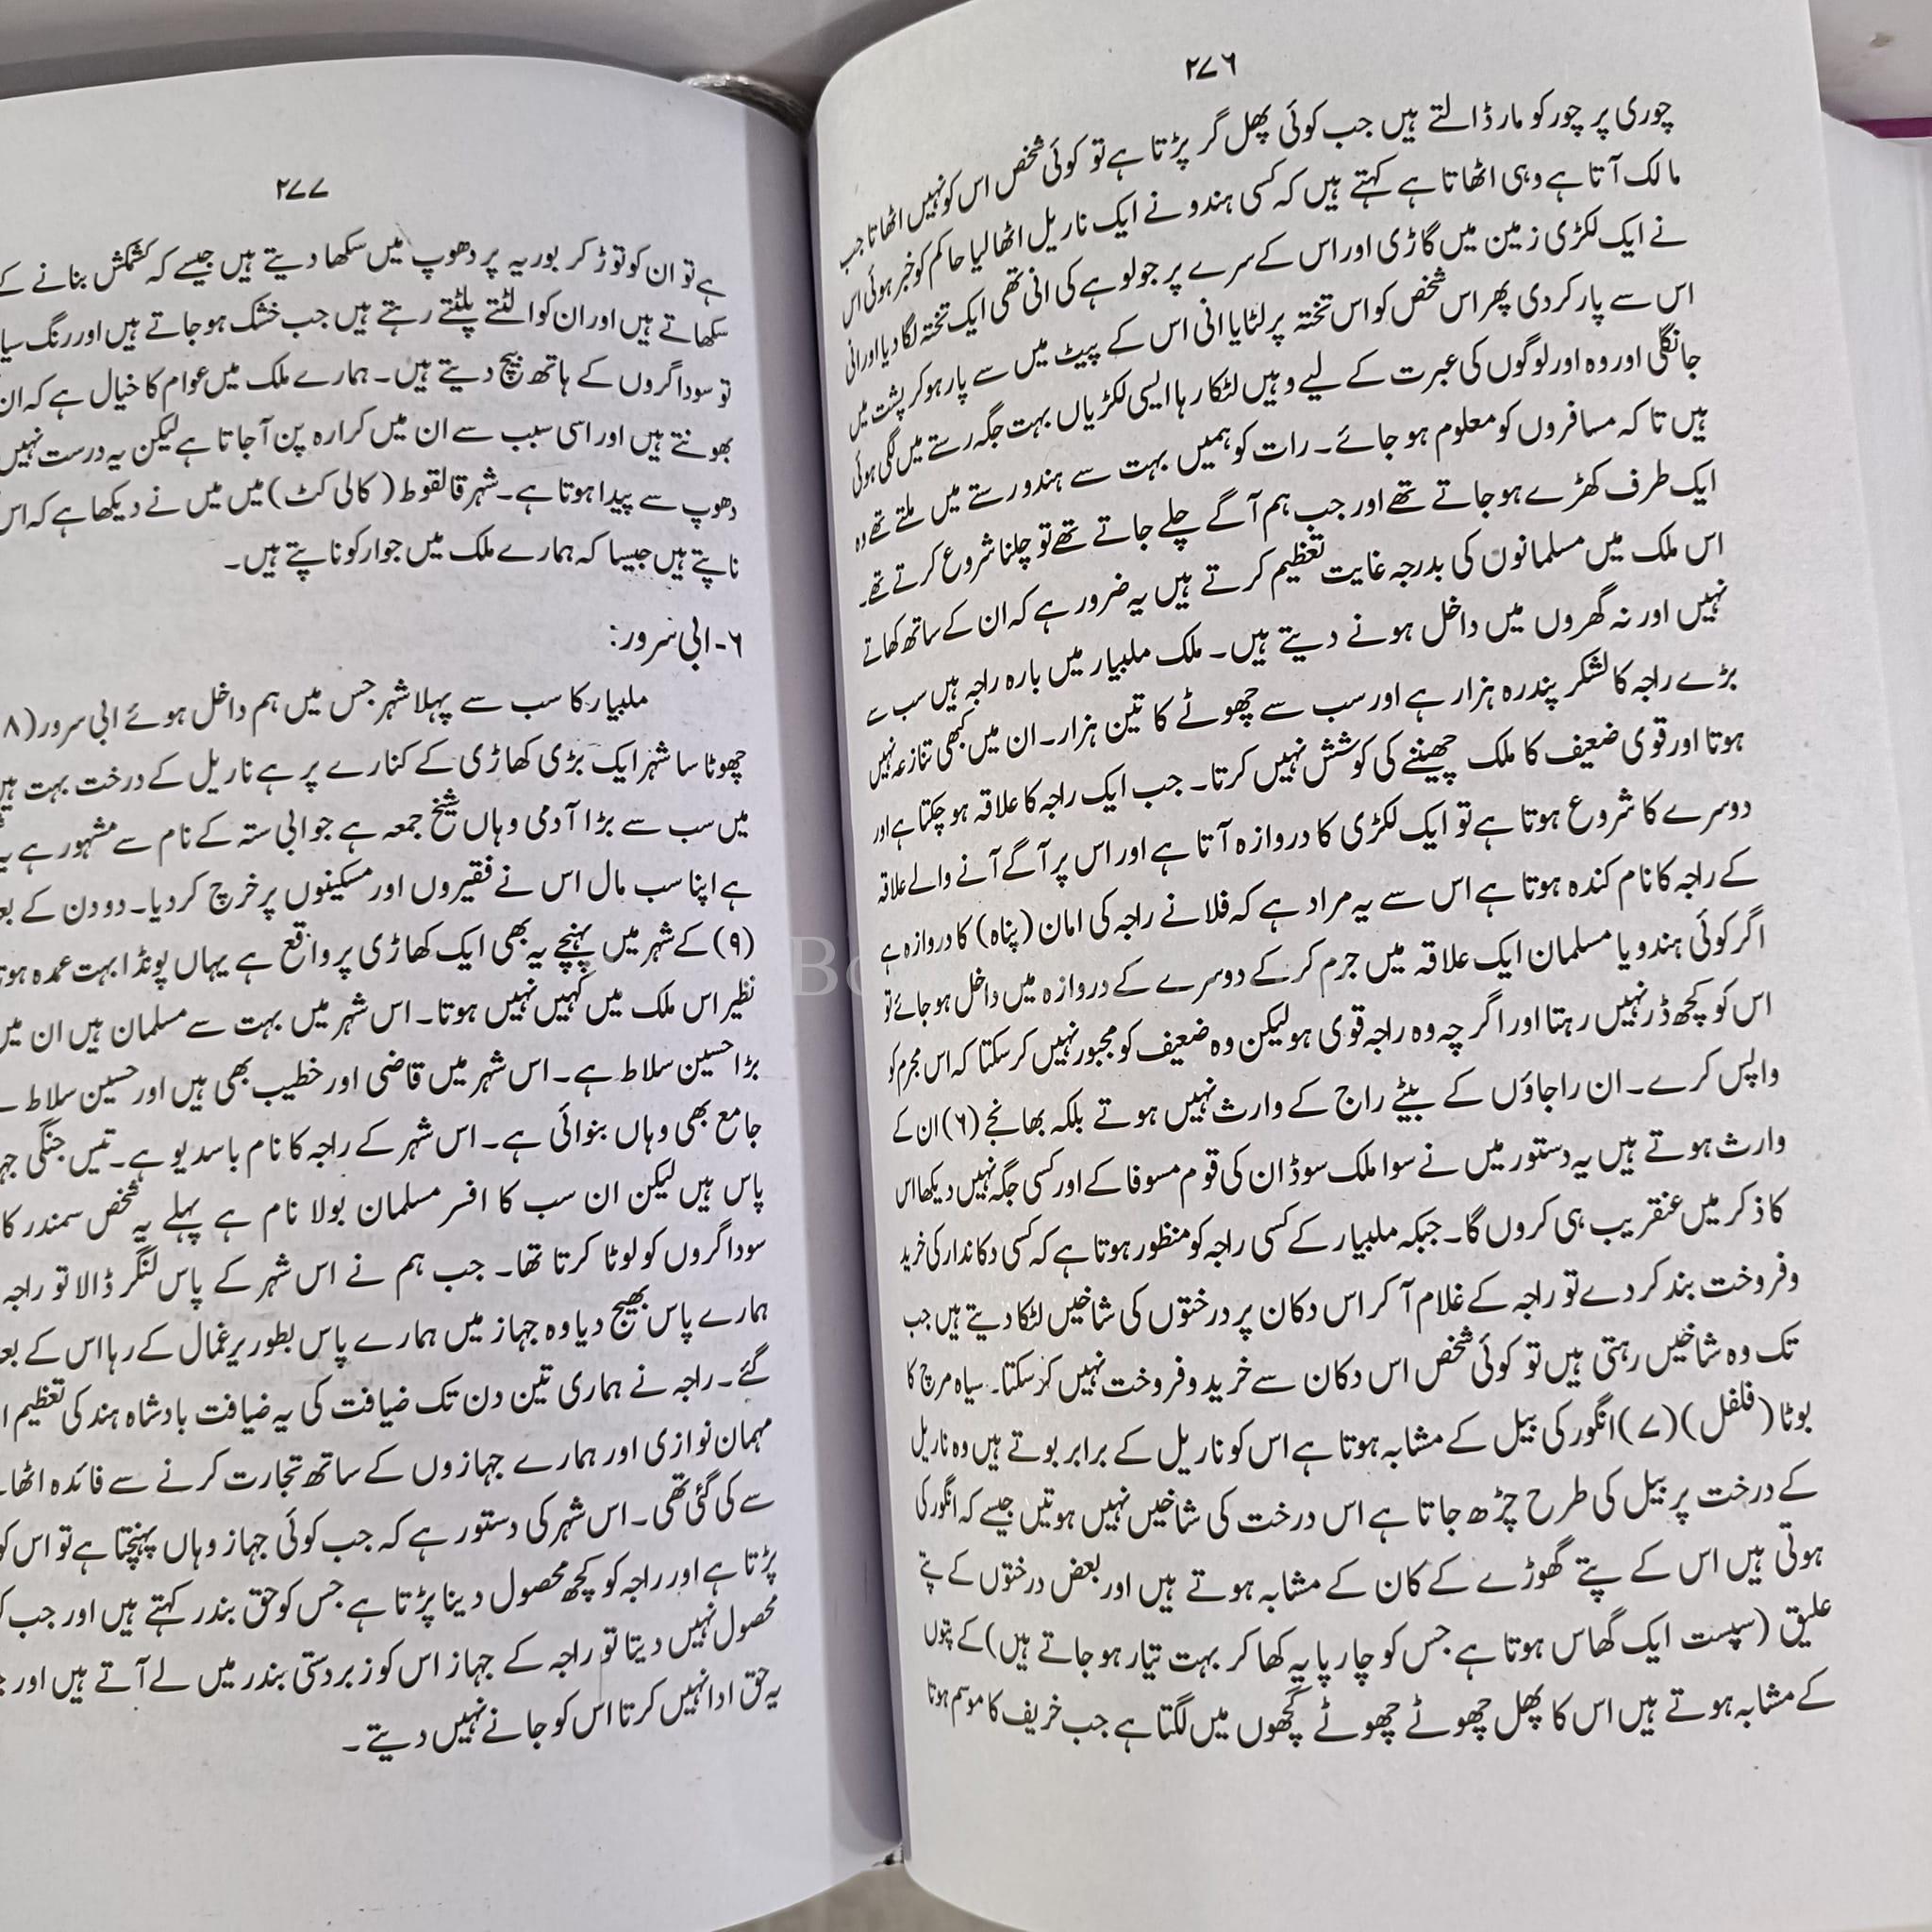 ۲۷۶
چوری پر چور کو مار ڈالتے ہیں جب کوئی پھل گر پڑتا ہے تو کوئی شخص اس کو نہیں اٹھاتا جب
مالک آتا ہے وہی اٹھاتا ہے کہتے ہیں کہ کسی ہندو نے ایک ناریل اٹھا لیا حاکم کو خبر ہوئی اس
نے ایک لکڑی زمین میں گاڑی اور اس کے سرے پر جو لوہے کی انی تھی ایک تختہ لگا دیا اور انی
اس سے پار کر دی پھر اس شخص کو اس تختہ پر لٹایا انی اس کے پیٹ میں سے پار ہو کر پشت میں
جا نکلی اور وہ اور لوگوں کی عبرت کے لیے وہیں لٹکا رہا ایسی لکڑیاں بہت جگہ رستے میں لگی ہوئی
ہیں تا کہ مسافروں کو معلوم ہو جائے۔ رات کو ہمیں بہت سے ہندو رستے میں ملتے تھے وہ
ایک طرف کھڑے ہو جاتے تھے اور جب ہم آگے چلے جاتے تھے تو چلنا شروع کرتے تھے۔
اس ملک میں مسلمانوں کی بدرجہ غایت تعظیم کرتے ہیں یہ ضرور ہے کہ ان کے ساتھ کھاتے
نہیں اور نہ گھروں میں داخل ہونے دیتے ہیں۔ ملک ملیبار میں بارہ راجہ ہیں سب سے
بڑے راجہ کا لشکر پندرہ ہزار ہے اور سب سے چھوٹے کا تین ہزار۔ ان میں کبھی تنازعہ نہیں
ہوتا اور قوی ضعیف کا ملک چھیننے کی کوشش نہیں کرتا۔ جب ایک راجہ کا علاقہ ہو چکتا ہے اور
دوسرے کا شروع ہوتا ہے تو ایک لکڑی کا دروازہ آتا ہے اور اس پر آگے آنے والے علاقہ
کے راجہ کا نام کندہ ہوتا ہے اس سے یہ مراد ہے کہ فلانے راجہ کی امان (پناہ) کا دروازہ ہے
اگر کوئی ہندو یا مسلمان ایک علاقہ میں جرم کر کے دوسرے کے دروازہ میں داخل ہو جائے تو
اس کو کچھ ڈر نہیں رہتا اور اگر چہ وہ راجہ قوی ہو لیکن وہ ضعیف کو مجبور نہیں کر سکتا کہ اس مجرم کو
واپس کرے۔ ان راجاؤں کے بیٹے راج کے وارث نہیں ہوتے بلکہ بھانجے (۶) ان کے
وارث ہوتے ہیں یہ دستور میں نے سوا ملک سوڈان کی قوم مسوفا کے اور کسی جگہ نہیں دیکھا اس
کا ذکر میں عنقریب ہی کروں گا۔ جبکہ ملیبار کے کسی راجہ کو منظور ہوتا ہے کہ کسی دکاندار کی خرید
و فروخت بند کر دے تو راجہ کے غلام آ کر اس دکان پر درختوں کی شاخیں لٹکا دیتے ہیں جب
تک وہ شاخیں رہتی ہیں تو کوئی شخص اس دکان سے خرید و فروخت نہیں کر سکتا۔ سیاہ مرچ کا
بوٹا (فلفل) (۷) انگور کی بیل کے مشابہ ہوتا ہے اس کو ناریل کے برابر بوتے ہیں وہ ناریل
کے درخت پر بیل کی طرح چڑھ جاتا ہے اس درخت کی شاخیں نہیں ہوتیں جیسے کہ انگور کی
ہوتی ہیں اس کے پتے گھوڑے کے کان کے مشابہ ہوتے ہیں اور بعض درختوں کے پتے
علیق (سپست ایک گھاس ہوتا ہے جس کو چار پایہ کھا کر بہت تیار ہو جاتے ہیں) کے پتوں
کے مشابہ ہوتے ہیں اس کا پھل چھوٹے چھوٹے گچھوں میں لگتا ہے جب خریف کا موسم ہوتا
۲۷۷
ہے تو ان کو توڑ کر بوریہ پر دھوپ میں سکھا دیتے ہیں جیسے کہ کشمکش بنانے کے
سکھاتے ہیں اور ان کو الٹتے پلٹتے رہتے ہیں جب خشک ہو جاتے ہیں اور رنگ
تو سوداگروں کے ہاتھ بیچ دیتے ہیں۔ ہمارے ملک میں عوام کا خیال ہے کہ
بھونتے ہیں اور اسی سبب سے ان میں کرارہ پن آ جاتا ہے لیکن یہ درست نہیں
دھوپ سے پیدا ہوتا ہے۔ شہر قالقوط (کالی کٹ) میں میں نے دیکھا ہے کہ اس
ناپتے ہیں جیسا کہ ہمارے ملک میں جوار کو ناپتے ہیں۔
۶- ابی سرور:
ملیبار کا سب سے پہلا شہر جس میں ہم داخل ہوئے ابی سرور (۸
چھوٹا سا شہر ایک بڑی کھاڑی کے کنارے پر ہے ناریل کے درخت بہت ہیں
میں سب سے بڑا آدمی وہاں شیخ جمعہ ہے جو ابی ستہ کے نام سے مشہور ہے
ہے اپنا سب مال اس نے فقیروں اور مسکینوں پر خرچ کر دیا۔ دو دن کے
(۹) کے شہر میں پہنچے یہ بھی ایک کھاڑی پر واقع ہے یہاں پونڈا بہت عمدہ
نظیر اس ملک میں کہیں نہیں ہوتا۔ اس شہر میں بہت سے مسلمان ہیں ان میں
بڑا حسین سلاط ہے۔ اس شہر میں قاضی اور خطیب بھی ہیں اور حسین سلاط
جامع بھی وہاں بنوائی ہے۔ اس شہر کے راجہ کا نام باسدیو ہے۔ تیس جنگی
پاس ہیں لیکن ان سب کا افسر مسلمان بولا نام ہے پہلے یہ شخص سمندر کا
سوداگروں کو لوٹا کرتا تھا۔ جب ہم نے اس شہر کے پاس لنگر ڈالا تو راجہ
ہمارے پاس بھیج دیا وہ جہاز میں ہمارے پاس بطور یرغمال کے رہا اس کے
گئے۔ راجہ نے ہماری تین دن تک ضیافت کی یہ ضیافت بادشاہ ہند کی تعظیم
مہمان نوازی اور ہمارے جہازوں کے ساتھ تجارت کرنے سے فائدہ
سے کی گئی تھی۔ اس شہر کی دستور ہے کہ جب کوئی جہاز وہاں پہنچتا ہے تو اس کو
پڑتا ہے اور راجہ کو کچھ محصول دینا پڑتا ہے جس کو حق بندر کہتے ہیں اور جب
محصول نہیں دیتا تو راجہ کے جہاز اس کو زبردستی بندر میں لے آتے ہیں اور
یہ حق ادا نہیں کرتا اس کو جانے نہیں دیتے۔